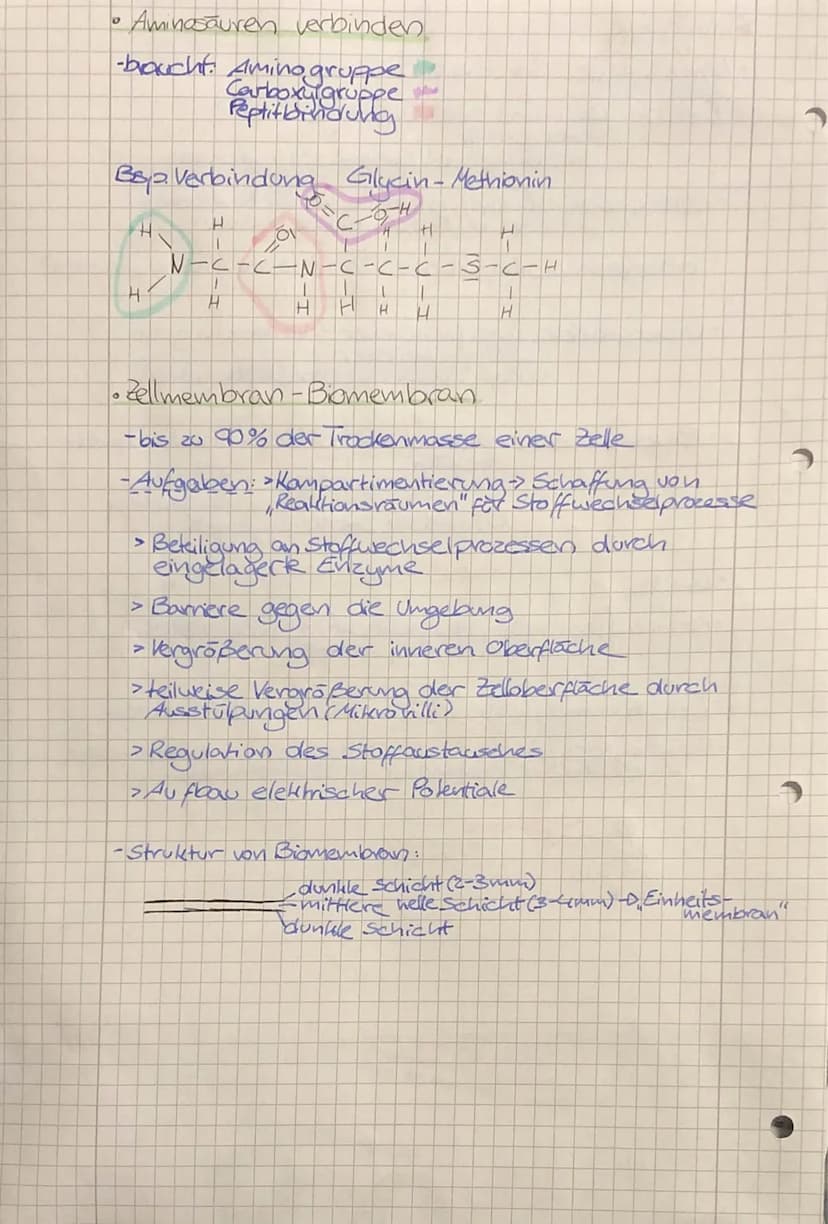 • Aminosäuren verbinden
-braucht: Aminogruppe
Carboxylgruppe
Peptitbindung
Bsp. Verbindung Glycin - Methionin
O = C - O - H
H H O H H H
N - C - C - N - C - C - C - S - C - H
H H H H H H H
• Zellmembran - Biomembran
- bis zu 90% der Trockenmasse einer Zelle
- Aufgaben: > Kompartimentierung → Schaffung von
„Reaktionsräumen" für Stoffwechselprozesse
> Beteiligung an Stoffwechselprozessen durch
eingelagerte Enzyme
> Barriere gegen die Umgebung
> Vergrößerung der inneren Oberfläche
> teilweise Vergrößerung der Zelloberfläche durch
Ausstülpungen (Mikrovilli)
> Regulation des Stoffaustausches
> Aufbau elektrischer Potentiale
- Struktur von Biomembran:
dunkle Schicht (2-3mm)
mittlere helle Schicht (3-4mm) → „Einheits-
membran"
dunkle Schicht